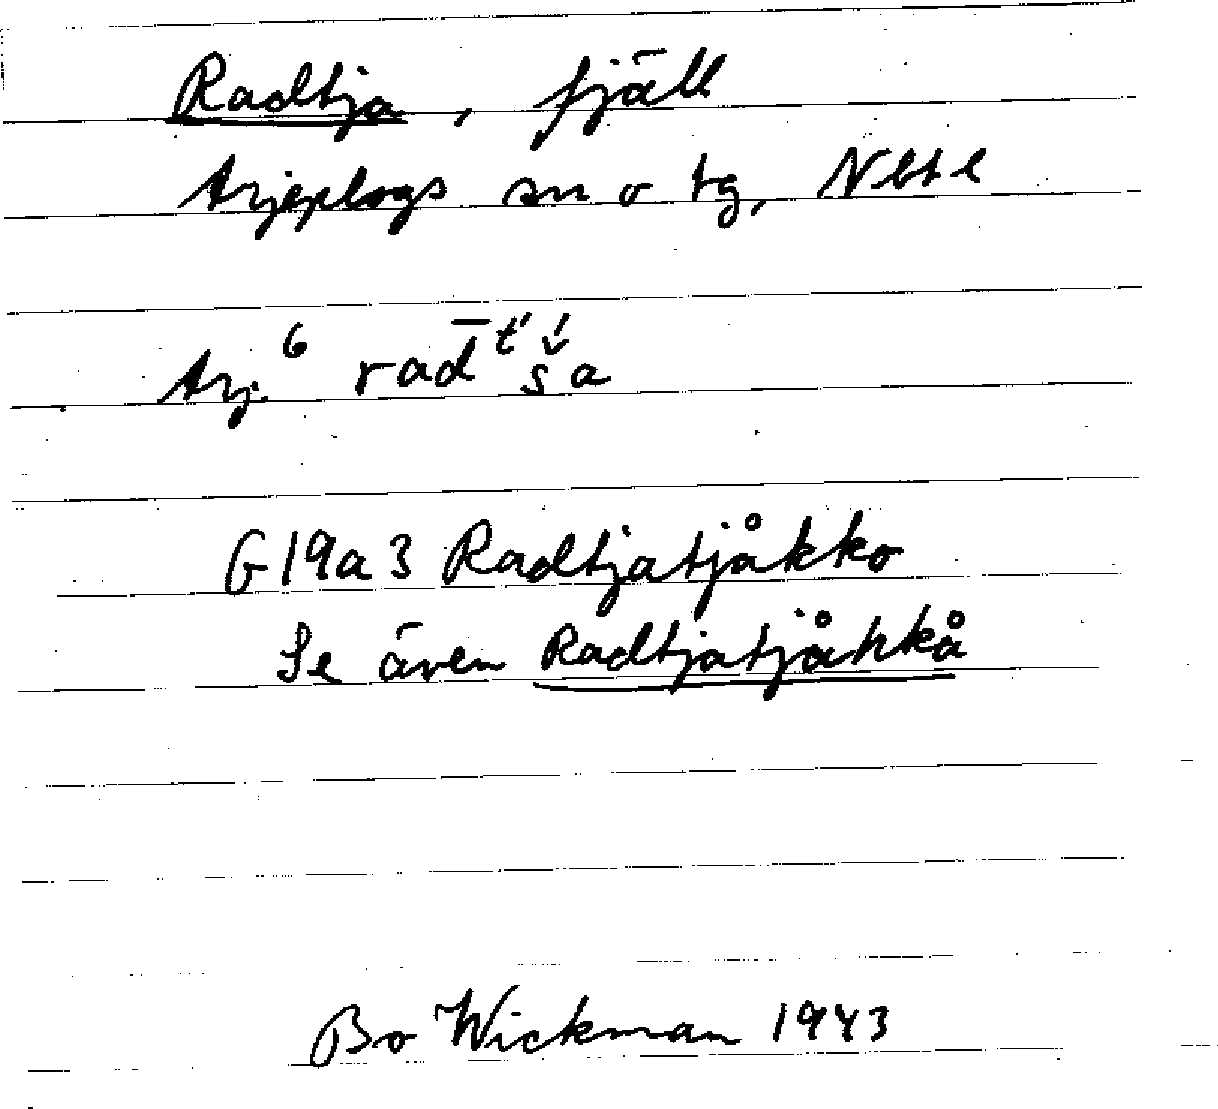 Radtja, fjäll
Arjeplogs sn o tg, Nbtl
Arj. 6 rad̅ᵗ́š́a
G19a3 Radtjatjåkko
Se även Radtjatjåhkå
Bo Wickman 1943